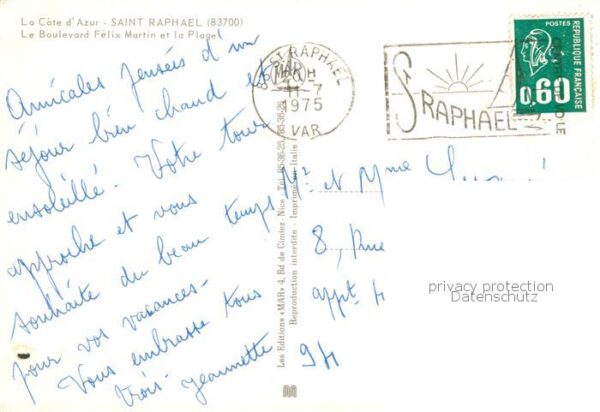 La Côte d'Azur - SAINT RAPHAEL (83700)
Le Boulevard Félix Martin et la Plage
Amicales pensées d'un
séjour bien chaud et
ensoleillé. Votre tour
approche et vous
souhaite du beau temps
pour vos vacances.
Vous embrasse tous
trois. Jeannette
83 ST RAPHAEL
11-7
1975
VAR
ST RAPHAEL
POSTES
REPUBLIQUE FRANÇAISE
0,60
Mr et Mme
8, Rue
appt 4
94
privacy protection
Datenschutz
Les Editions «MAR» 4, Bd de Cimiez - Nice - Tél.
Reproduction interdite - Imprimé en Italie